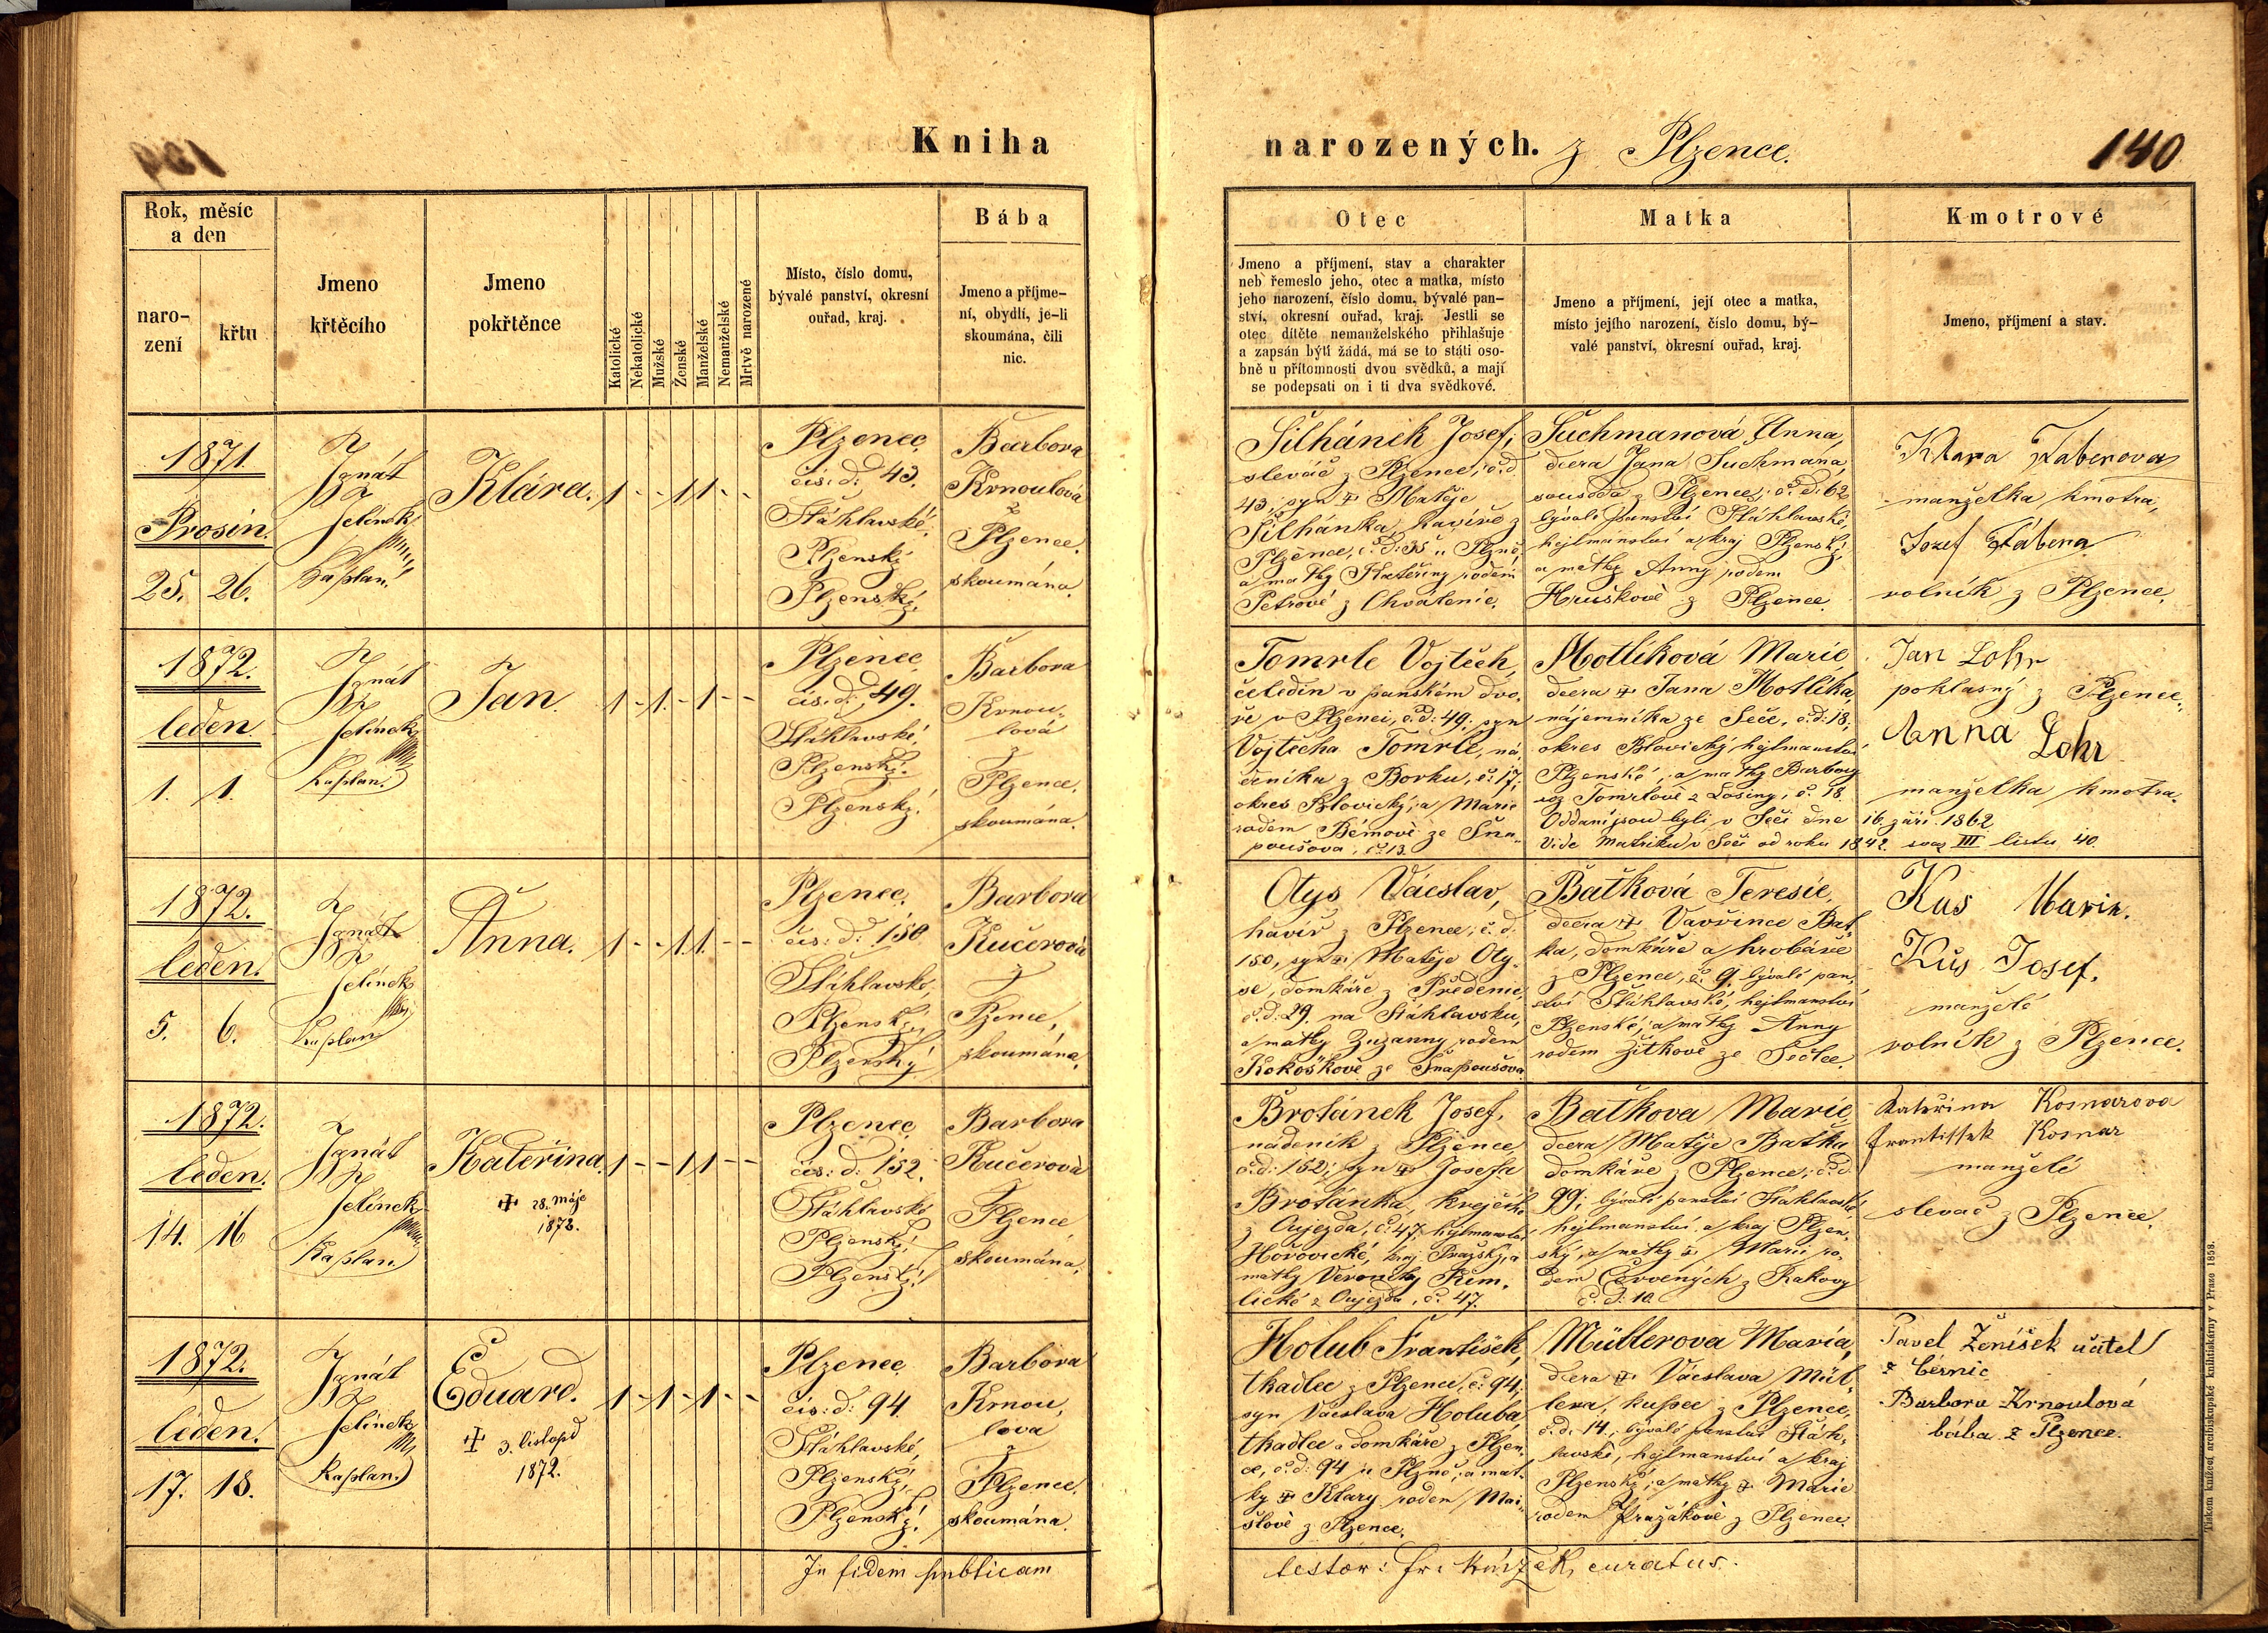 Kniha
narozených. z Plzence.
140
Rok, měsíc
a den
naro-
zení
křtu
Jmeno
křtěcího
Jmeno
pokřtěnce
Katolické
Nekatolické
Mužské
Ženské
Manželské
Nemanželské
Mrtvě narozené
Místo, číslo domu,
bývalé panství, okresní
ouřad, kraj.
Bába
Jmeno a příjme-
ní, obydlí, je-li
skoumána, čili
nic.
Otec
Jmeno a příjmení, stav a charakter
neb řemeslo jeho, otec a matka, místo
jeho narození, číslo domu, bývalé pan-
ství, okresní ouřad, kraj. Jestli se
otec dítěte nemanželského přihlašuje
a zapsán býti žádá, má se to státi oso-
bně u přítomnosti dvou svědků, a mají
se podepsati on i ti dva svědkové.
Matka
Jmeno a příjmení, její otec a matka,
místo jejího narození, číslo domu, bý-
valé panství, okresní ouřad, kraj.
Kmotrové
Jmeno, příjmení a stav.
1871.
Prosin.
25. 26.
Ignát
Jelínek
Kaplan.
Klára.
1 - - 1 1 - -
Plzenec,
čís: d: 43.
Šťáhlavské,
Plzenský
Plzenský.
Barbora
Krnoulová
z
Plzence.
skoumána.
Šilhánek Josef,
slevač z Plzence, č. d.
43, syn + Matěje
Šilhánka, havíře z
Plzence, č. d: 35 u Plzně,
a matky Kateřiny rodem
Petrové z Chválenic.
Suchmanová Anna,
dcera Jana Suchmana,
souseda z Plzence, č. d: 62
bývalé panství Šťáhlavské,
hejtmanství a kraj Plzenský,
a matky Anny rodem
Hruškově z Plzence.
Klara Faberova
manželka kmotra,
Jozef Fábera
rolník z Plzence.
1872.
leden
1. 1.
Ignát
Jelínek
Kaplan.
Jan.
1 - 1. - 1 - -
Plzenec
čís: d: 49.
Šťáhlavské,
Plzenský.
Plzenský.
Barbora
Krnou-
lová
z
Plzence.
skoumána.
Tomrle Vojtěch,
čeledín v panském dvo-
ře v Plzenci, č. d: 49. syn
Vojtěcha Tomrle, ná-
deníka z Borku, č: 17,
okres Blovický, a Marie
rodem Bémově ze Šna-
poušova, č. 13.
Motlíková Marie,
dcera + Jana Motlíka,
nájemníka ze Seče, č. d: 18.
okres Blovický hejtmanství
Plzenské, a matky Barbory
roz. Tomrlově z Losiny, č. 18.
Oddaní jsou byli v Seči dne 16. září 1862
Vide matriku v Seči od roku 1842. svaz III listu 40.
Jan Lohr
poklasný z Plzence.
Anna Lohr
manželka kmotra.
1872.
leden.
5. 6.
Ignát
Jelínek
Kaplan
Anna.
1 - - 1. 1. - -
Plzenec,
čís: d: 150
Šťáhlavské,
Plzenský,
Plzenský
Barbora
Kučerová
z
Plzence,
skoumána.
Otys Václav,
havíř z Plzence, č. d.
150, syn + Matěje Oty-
se, domkáře z Předenic,
č. d: 29. na Šťáhlavsku,
a matky Zuzanny rodem
Kokoškově ze Šnapoušova.
Baťková Teresie,
dcera + Vavřince Bať-
ka, domkáře a hrobaře
z Plzence, č. 9. bývalé pan-
ství Šťáhlavské, hejtmanství
Plzenské, a matky Anny
rodem Žitkově ze Sedlce.
Kus Marie.
Kůs Josef.
manželé
rolník z Plzence.
1872.
leden.
14. 16
Ignát
Jelínek
Kaplan.
Kateřina.
+ 28. máje
1873.
1 - - 1 1 - -
Plzenec
čís: d: 152.
Šťáhlavské
Plzenský,
Plzenský.
Barbora
Kučerová
z
Plzence
skoumána.
Brotánek Josef,
nádeník z Plzence
č. d: 152; syn + Josefa
Brotánka, krejčího
z Oujezda, č. 47. hejtmanství
Hořovické, kraj Pražský, a
matky Veroniky Řem-
lické z Oujezda, č. 47.
Baťkova Marie,
dcera Matěje Baťka
domkáře z Plzence, č. d.
99, bývalé panství Šťáhlavské
hejtmanství a kraj Plzen-
ský, a matky + Marie ro-
dem Červených z Rakovy
č. d: 10.
Kateřina Kosnarova
Frantissek Kosnar
manželé
slevač z Plzence.
1872.
leden.
17. 18.
Ignát
Jelínek
Kaplan.
Eduard.
+ 3. listopd
1872.
1 - 1 - 1 - -
Plzenec
čís: d: 94.
Šťáhlavské,
Plzenský,
Plzenský.
Barbora
Krnou-
lova
z
Plzence.
skoumána.
Holub František,
tkadlec z Plzence, č: 94,
syn Václava Holuba,
tkadlce a domkáře z Plzen-
ce, č. d: 94 u Plzně, a mat-
ky + Klary rodem Mai-
šlově z Plzence.
Müllerova Maria,
dcera + Václava Mül-
lera, kupce z Plzence,
č. d. 14., bývalé panství Šťáh-
lavské, hejtmanství a kraj
Plzenský, a matky + Marie
rodem Pražákově z Plzence.
Pavel Ženíšek učitel
z Černic
Barbora Krnoulová
bába z Plzence.
In fidem publicam
testor: Fr. curatus.
Tiskem knížecí arcibiskupské knihtiskárny v Praze 1858.